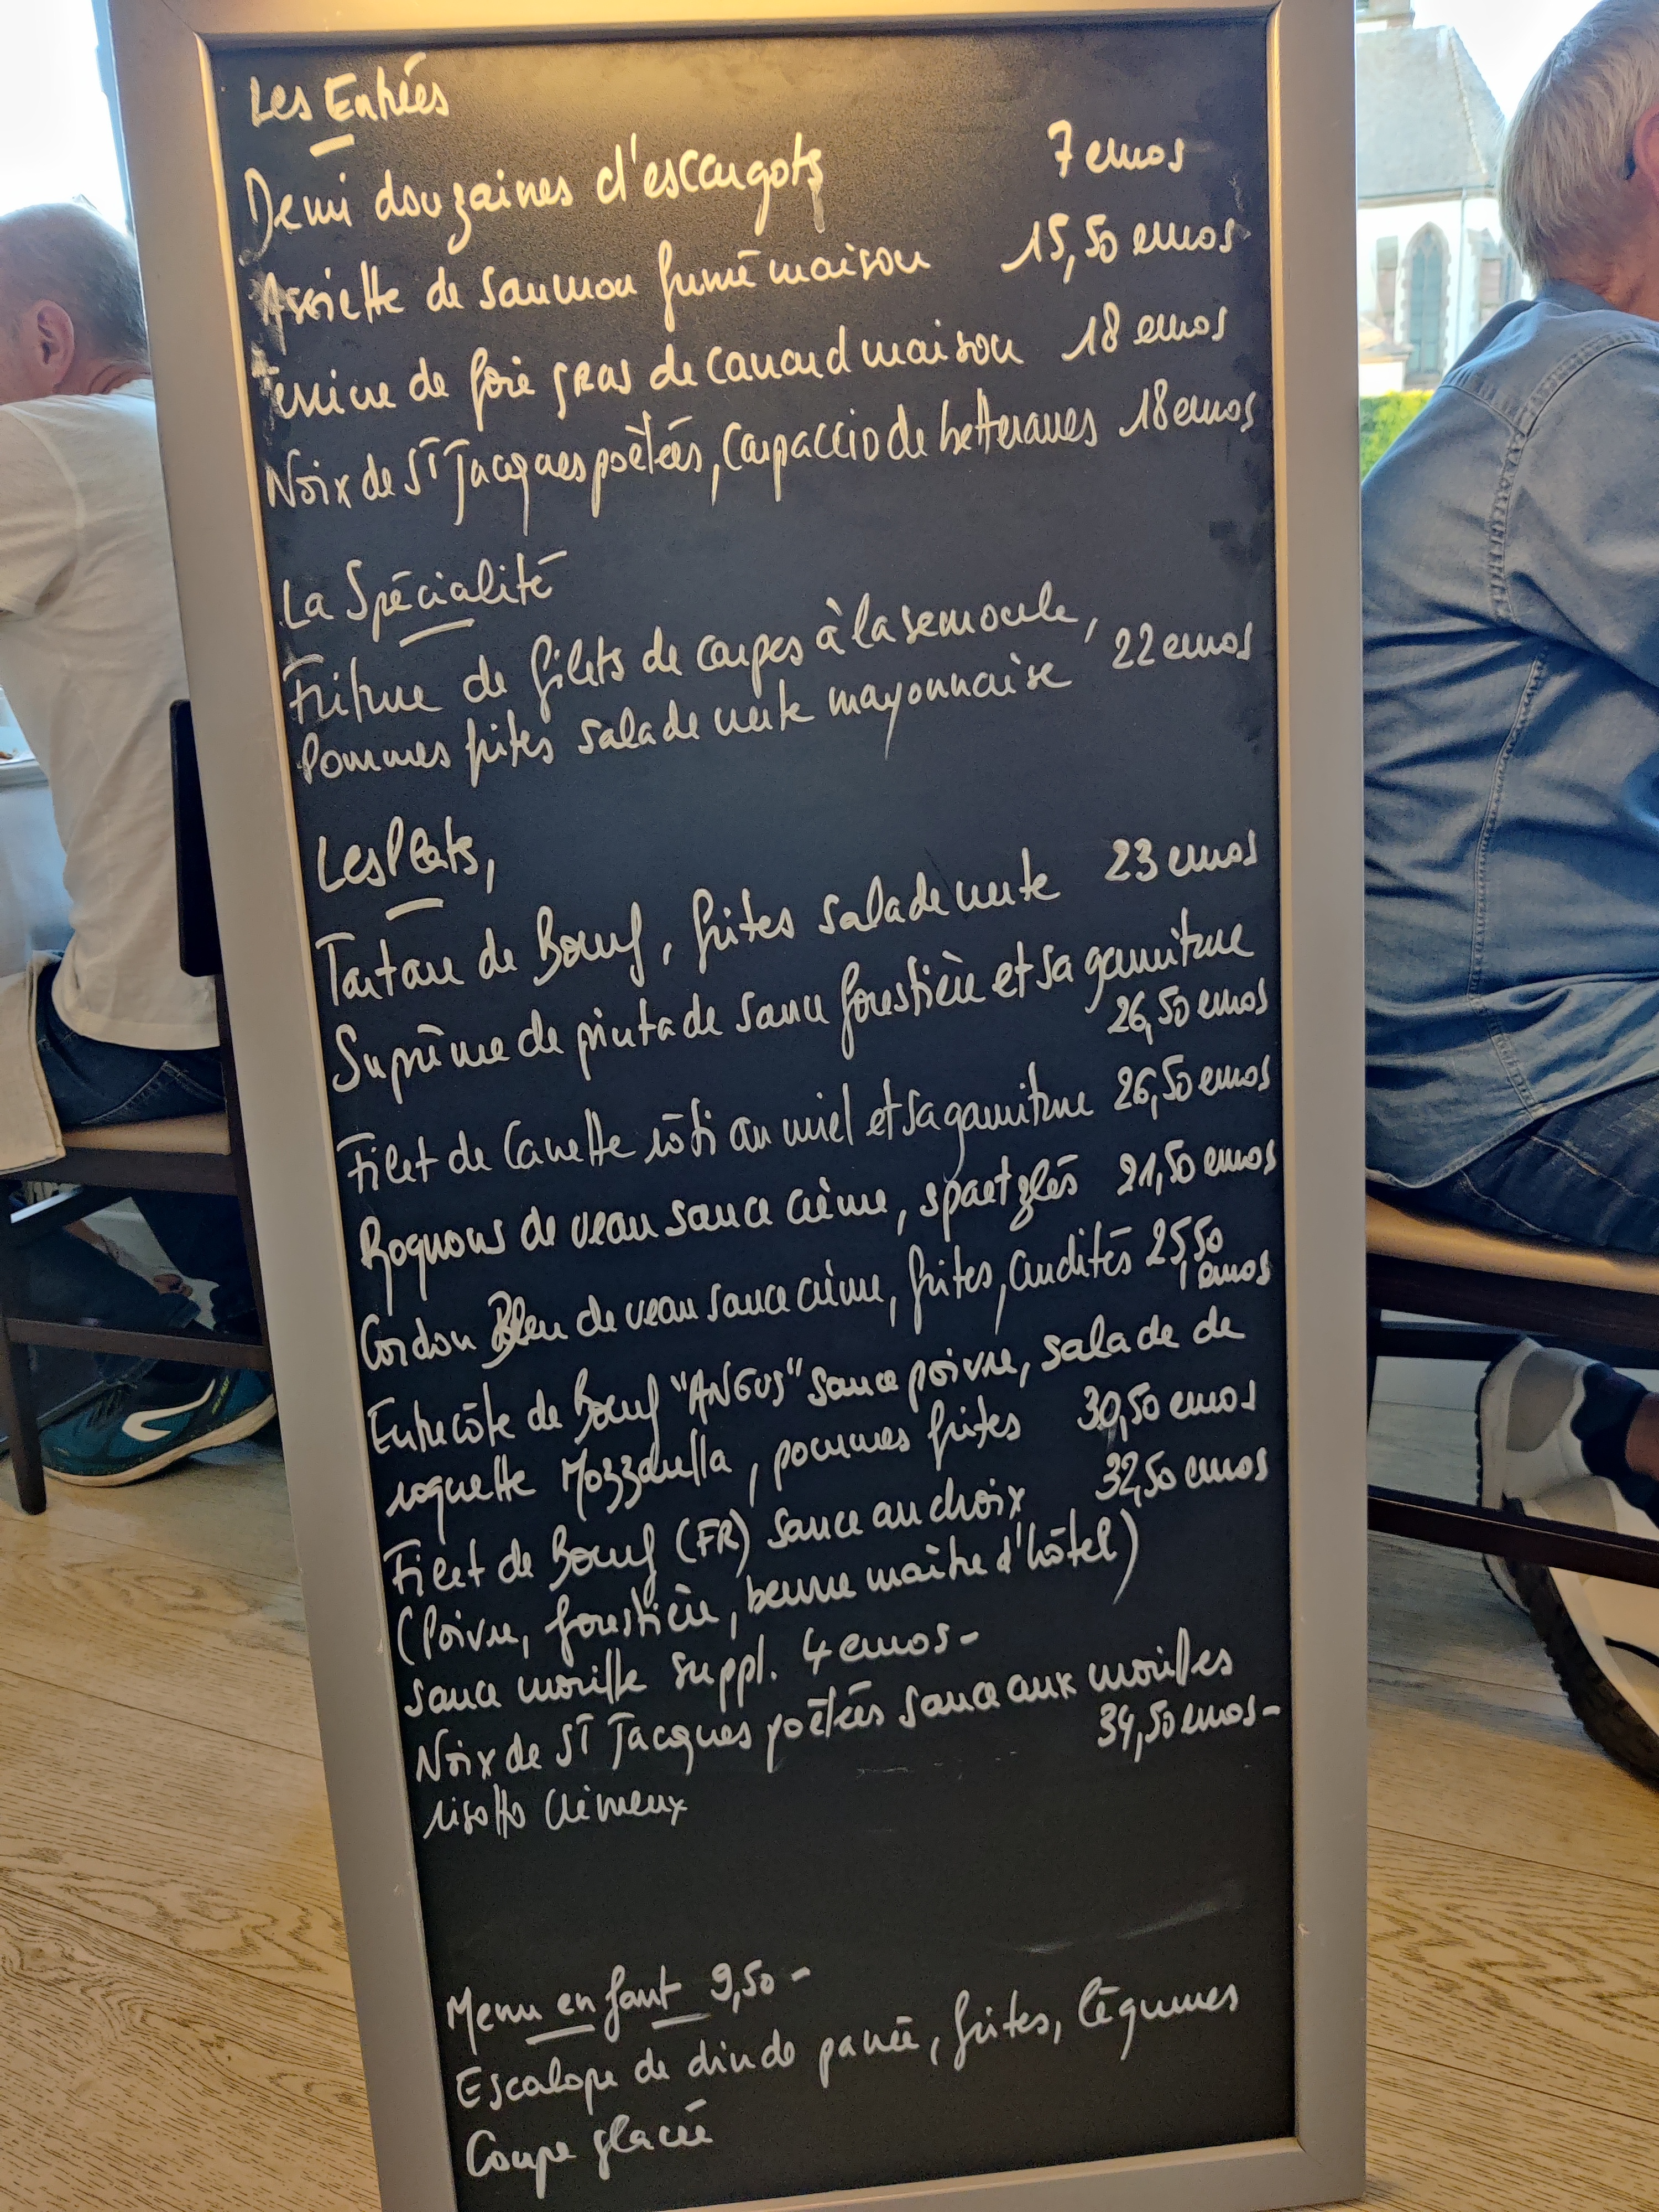 Les Entrées
Demi douzaines d'escargots 7 euros
Assiette de saumon fumé maison 15,50 euros
Terrine de foie gras de canard maison 18 euros
Noix de St Jacques poêlées, Carpaccio de betteraves 18 euros
La Spécialité
Friture de filets de carpes à la semoule,
Pommes frites salade verte mayonnaise 22 euros
Les Plats,
Tartare de Bœuf, frites salade verte 23 euros
Suprême de pintade sauce forestière et sa garniture
26,50 euros
Filet de Canette rôti au miel et sa garniture 26,50 euros
Rognons de veau sauce crème, spaetzlés 21,50 euros
Cordon Bleu de veau sauce crème, frites, crudités 25,50
euros
Entrecôte de Bœuf "ANGUS" sauce poivre, salade de
roquette Mozzarella, pommes frites 30,50 euros
Filet de Bœuf (FR) sauce au choix 32,50 euros
(Poivre, forestière, beurre maître d'hôtel)
sauce morille suppl. 4 euros-
Noix de St Jacques poêlées sauce aux morilles
34,50 euros-
risotto crémeux
Menu enfant 9,50-
Escalope de dinde panée, frites, légumes
Coupe glacée